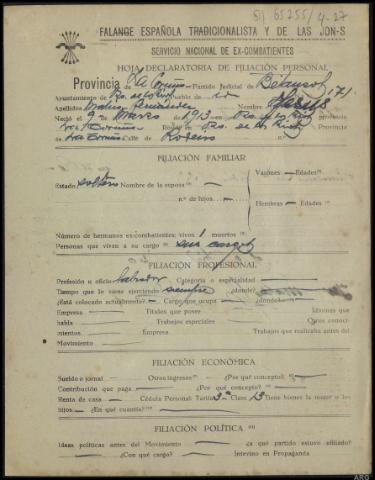 65255/4-27
FALANGE ESPAÑOLA TRADICIONALISTA Y DE LAS JON-S
SERVICIO NACIONAL DE EX-COMBATIENTES
HOJA DECLARATORIA DE FILIACIÓN PERSONAL
Provincia de La Coruña Partido Judicial de Betanzos 171
Ayuntamiento de Pueblo de id
Apellidos Fernández Nombre
Nació el 9 de Marzo de 1913 en
La Coruña Reside en Provincia
de La Coruña Calle de Rodeiro
FILIACIÓN FAMILIAR
Varones — Edades
Estado soltero Nombre de la esposa
n.º de hijos
Hembras — Edades
Número de hermanos excombatientes: vivos 1 muertos
Personas que vivan a su cargo sin cargo
FILIACIÓN PROFESIONAL
Profesión u oficio labrador Categoría o especialidad
Tiempo que lo viene ejerciendo siempre ¿dónde?
¿Está colocado actualmente? Cargo que ocupa ¿dónde?
Empresa Títulos que posee Idiomas que
habla Trabajos especiales Otros conoci-
mientos Empresa Trabajos que realizaba antes del
Movimiento
FILIACIÓN ECONÓMICA
Sueldo o jornal Otros ingresos ¿Por qué concepto?
Contribución que paga ¿Por qué concepto?
Renta de casa Cédula Personal: Tarifa 3ª Clase 13 Tiene bienes la mujer o los
hijos ¿En qué cuantía?
FILIACIÓN POLÍTICA
Ideas políticas antes del Movimiento ¿a qué partido estuvo afiliado?
¿Con qué cargo? Intervino en Propaganda
ARG